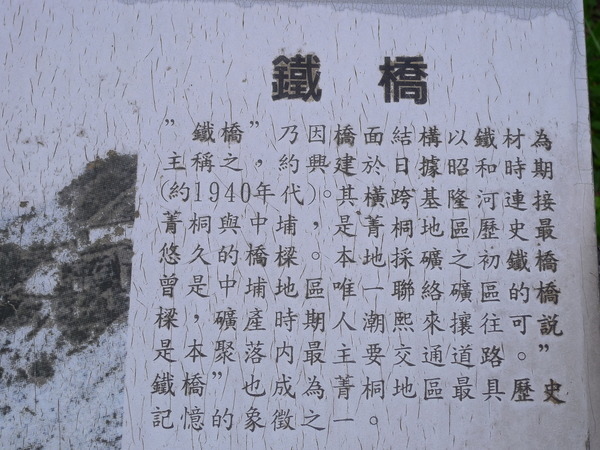 鐵橋
”鐵橋”乃因橋面結構以鐵材為
主稱之，約興建於日據昭和時期
(約1940年代)。其橫跨基隆河連接
菁桐與中埔，是菁桐地區歷史最
悠久的橋樑。本地採礦之初鐵橋
曾是中埔地區唯一聯絡礦區的橋
樑，礦產時期人潮熙來攘往可說
是本聚落內最主要交通道路。”
鐵橋”也成為菁桐地區最具歷史
記憶的象徵之一。